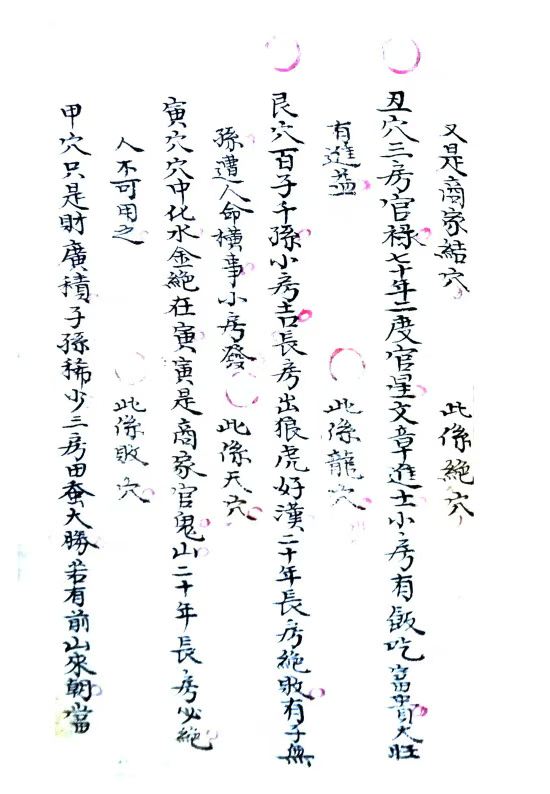 又是商家結穴　此係絕穴
丑穴三房官祿七十年二度官星文章進士小房有飯吃富貴大旺
有進益　此係龍穴
艮穴百子千孫小房吉長房出狼虎好漢二十年長房絕敗有子無
孫遭人命橫事小房發　此係天穴
寅穴穴中化水金絕在寅寅是商家官鬼山二十年長房必絕
人不可用之　此係敗穴
甲穴只是財廣積子孫稀少三房田蚕大勝若有前山來朝當